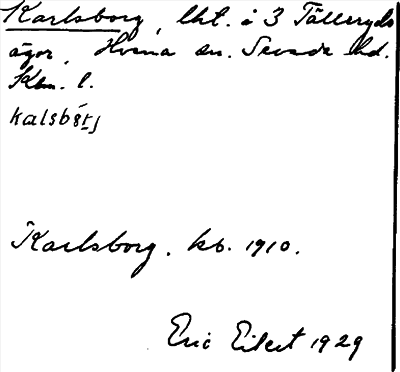 Karlsborg, lht. å 3 Tälleryds
ägor, Hvena sn. Sevede hd.
Klm. l.
kalsbårj
Karlsborg. kb. 1910.
Eric Eilert 1929